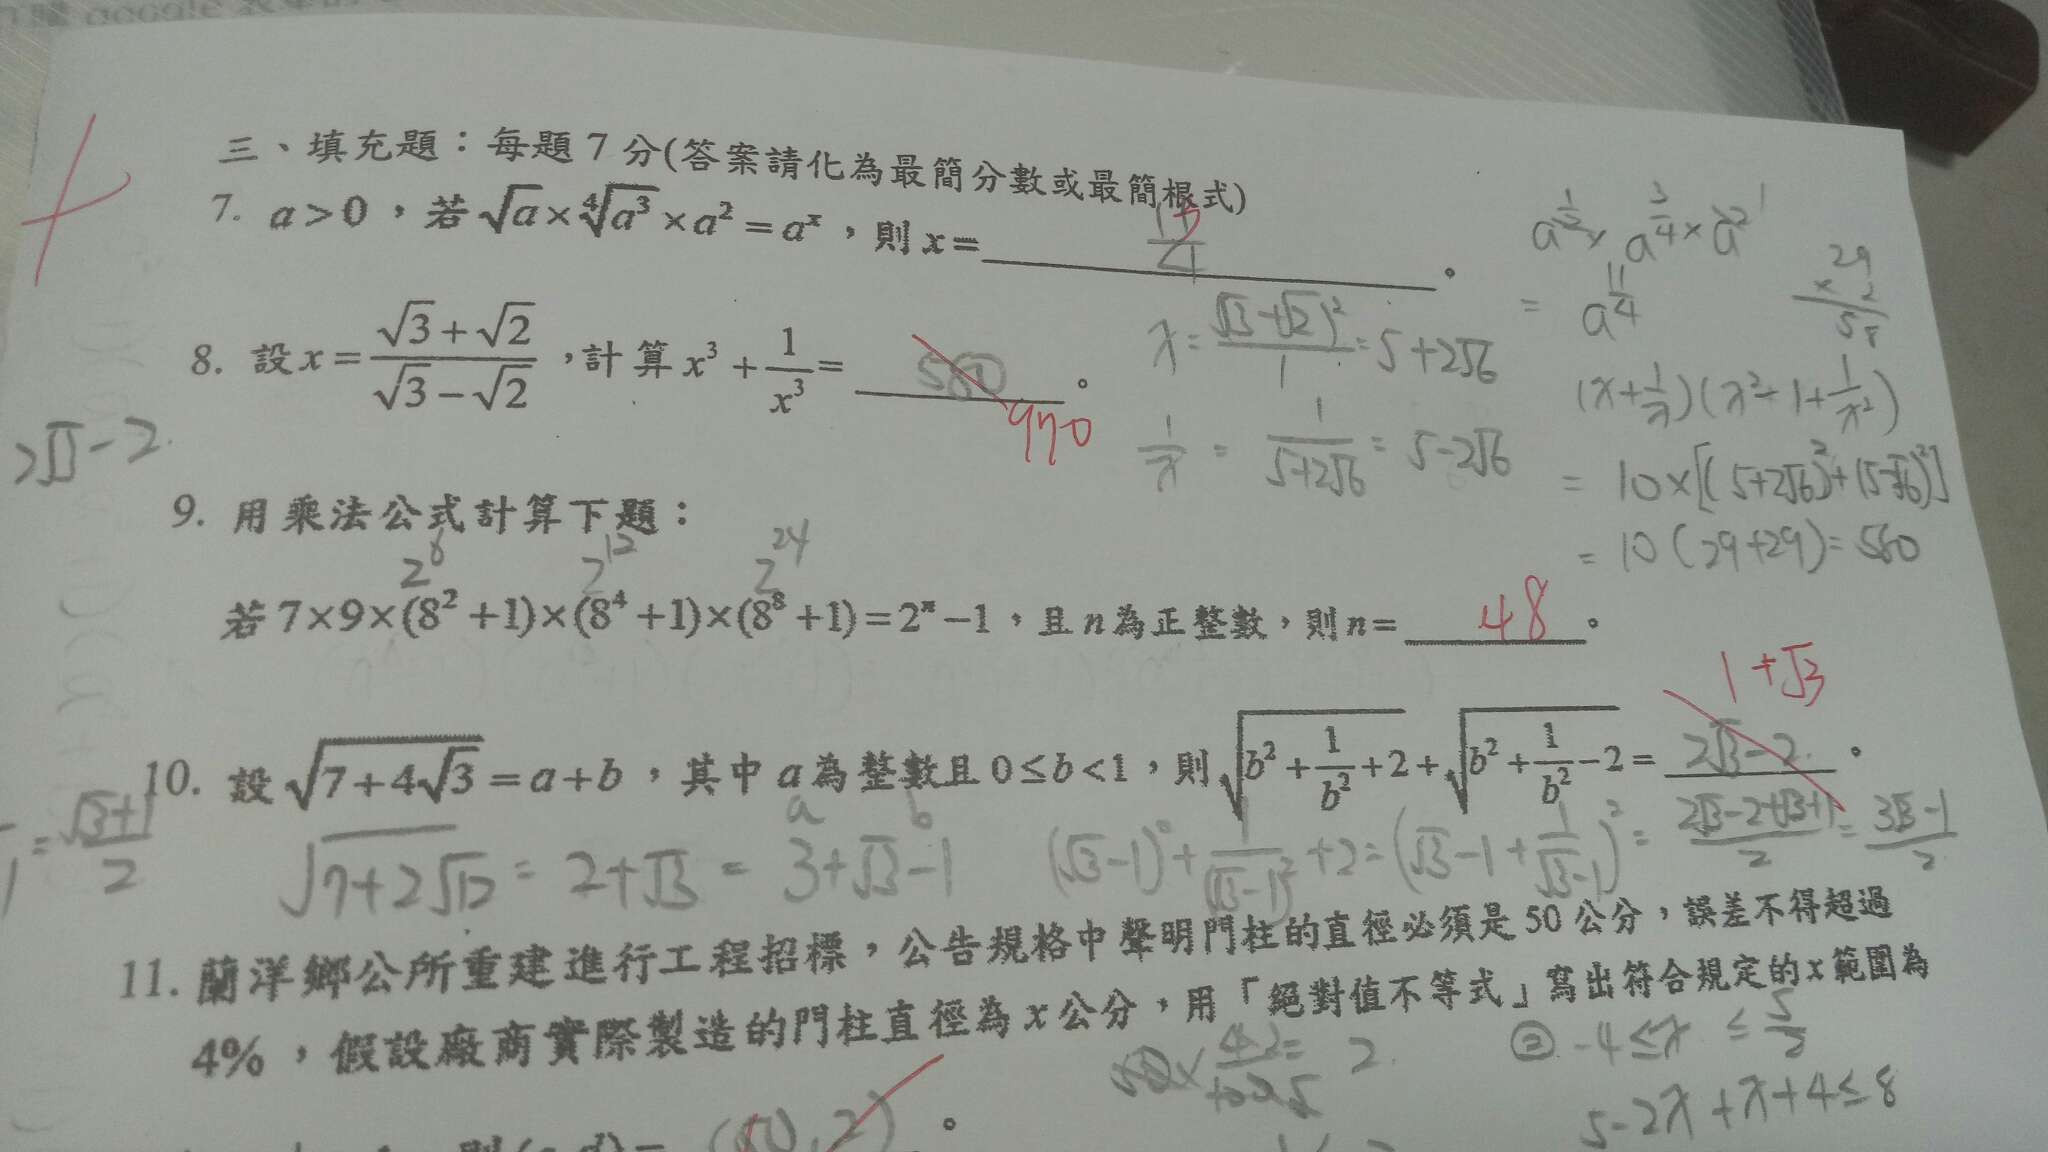 三、填充題：每題 7 分(答案請化為最簡分數或最簡根式)
7. a＞0，若 √a × ⁴√a³ × a² = aˣ，則 x = 11/4 。
a^(1/2) × a^(3/4) × a²
= a^(11/4)
29
× 2
58
8. 設 x = (√3+√2)/(√3−√2)，計算 x³ + 1/x³ = 580 。
970
x = (√3+√2)²/1 = 5+2√6
1/x = 1/(5+2√6) = 5−2√6
(x+1/x)(x²−1+1/x²)
= 10×[(5+2√6)²+(5−2√6)²]
= 10(29+29) = 580
2√3−2
9. 用乘法公式計算下題：
2⁶ 2¹² 2²⁴
若 7×9×(8²+1)×(8⁴+1)×(8⁸+1)=2ⁿ−1，且 n 為正整數，則 n= 48 。
1+√3
10. 設 √(7+4√3) = a+b，其中 a 為整數且 0≤b<1，則 √(b²+1/b²+2) + √(b²+1/b²−2) = 2√3−2 。
a b
√(7+2√12) = 2+√3 = 3+√3−1
(√3−1)²+1/(√3−1)²+2=(√3−1+1/(√3−1))² = (2√3−2+√3+1)/2 = (3√3−1)/2
= (√3+1)/2
11. 蘭洋鄉公所重建進行工程招標，公告規格中聲明門柱的直徑必須是 50 公分，誤差不得超過
4%，假設廠商實際製造的門柱直徑為 x 公分，用「絕對值不等式」寫出符合規定的 x 範圍為
② −4≤x≤5/2
5−2x+x+4≤8
(50,2) 。